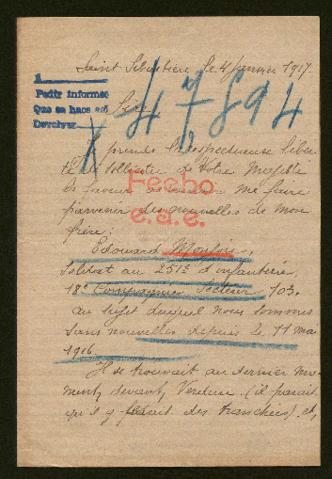 Saint Sébastien le 4 Janvier 1917
1
Pedir informes
Que se hace así
Devolver
47894
Sire,
Je prends la respectueuse liber-
té de solliciter de Votre Majesté
la faveur de me faire
parvenir des nouvelles de mon
frère:
Fecho
e.a.e.
Edouard
Soldat au 251e d'infanterie,
18e Compagnie, Secteur 703.
au sujet duquel nous sommes
sans nouvelles depuis le 11 mai
1916.
Il se trouvait au dernier mo-
ment, devant Verdun (il parait
qu'il y des tranchées), et,